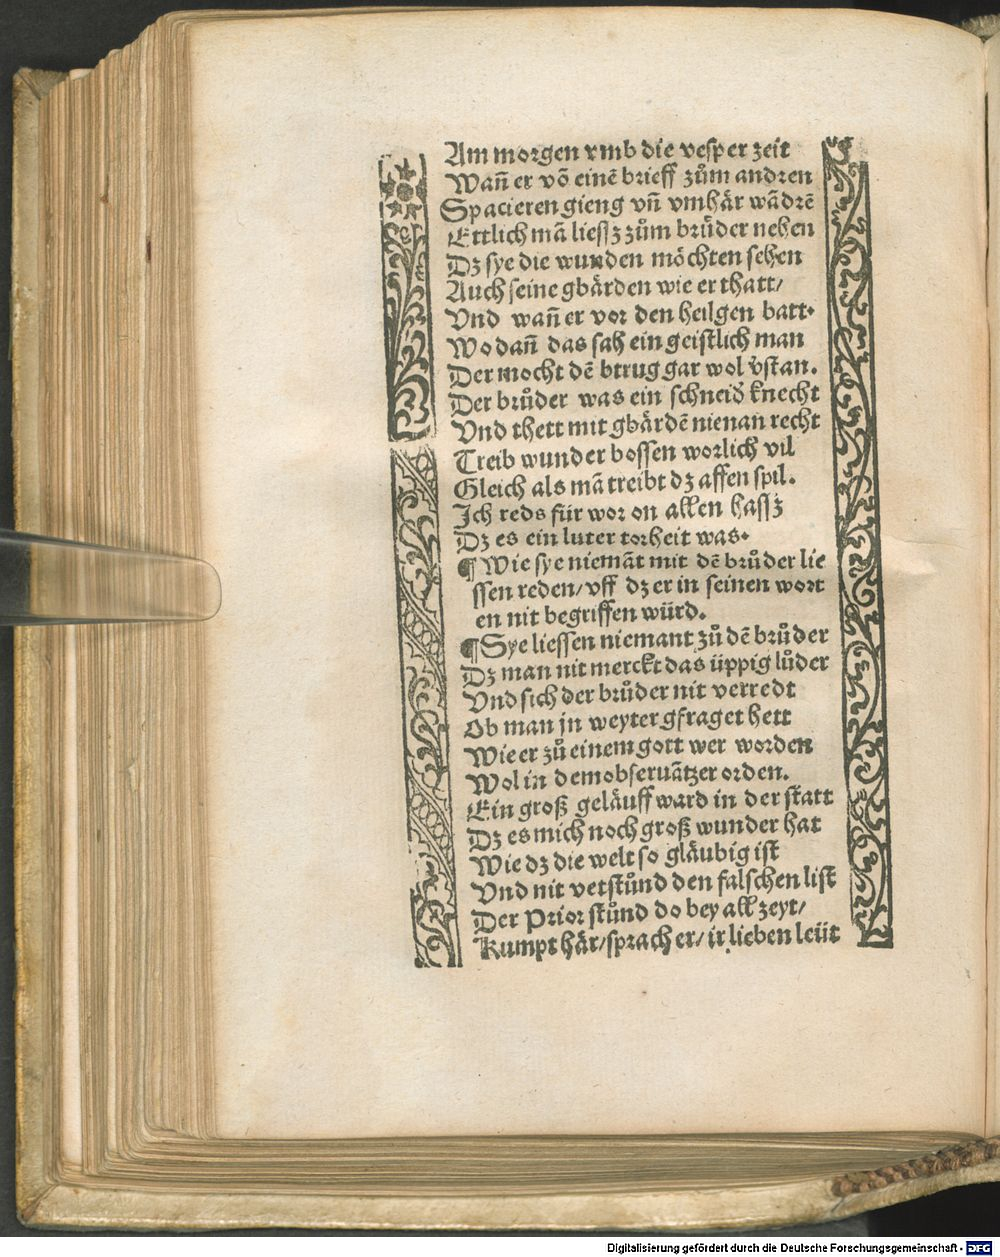 Am morgen vmb die vesper zeit
Wañ er võ einē brieff zům andren
Spacieren gieng vñ vmhär wãdrē
Ettlich mã liesſz zům brůder nehen
Dz sye die wunden möchten sehen
Auch seine gbärden wie er thatt/
Vnd wañ er vor den heilgen batt.
Wo dañ das sah ein geistlich man
Der mocht dē btrug gar wol v̈stan.
Der brůder was ein schneid knecht
Vnd thett mit gbärdē nienan recht
Treib wunder bossen worlich vil
Gleich als mã treibt dz affen spil.
Ich reds für wor on allen hasſz
Dz es ein luter torheit was.
¶ Wie sye niemãt mit dē brůder lie
ssen reden/ vff dz er in seinen wort
en nit begriffen würd.
¶ Sye liessen niemant zů dē brůder
Dz man nit merckt das üppig lůder
Vnd sich der brůder nit verredt
Ob man jn weyter gfraget hett
Wie er zů einem gott wer worden
Wol in dem obseruãtzer orden.
Ein groß geläuff ward in der statt
Dz es mich noch groß wunder hat
Wie dz die welt so gläubig ist
Vnd nit vetstůnd den falschen list
Der Prior stůnd do bey all zeyt/
Kumpt här/ sprach er/ ir lieben leüt
Digitalisierung gefördert durch die Deutsche Forschungsgemeinschaft - DFG